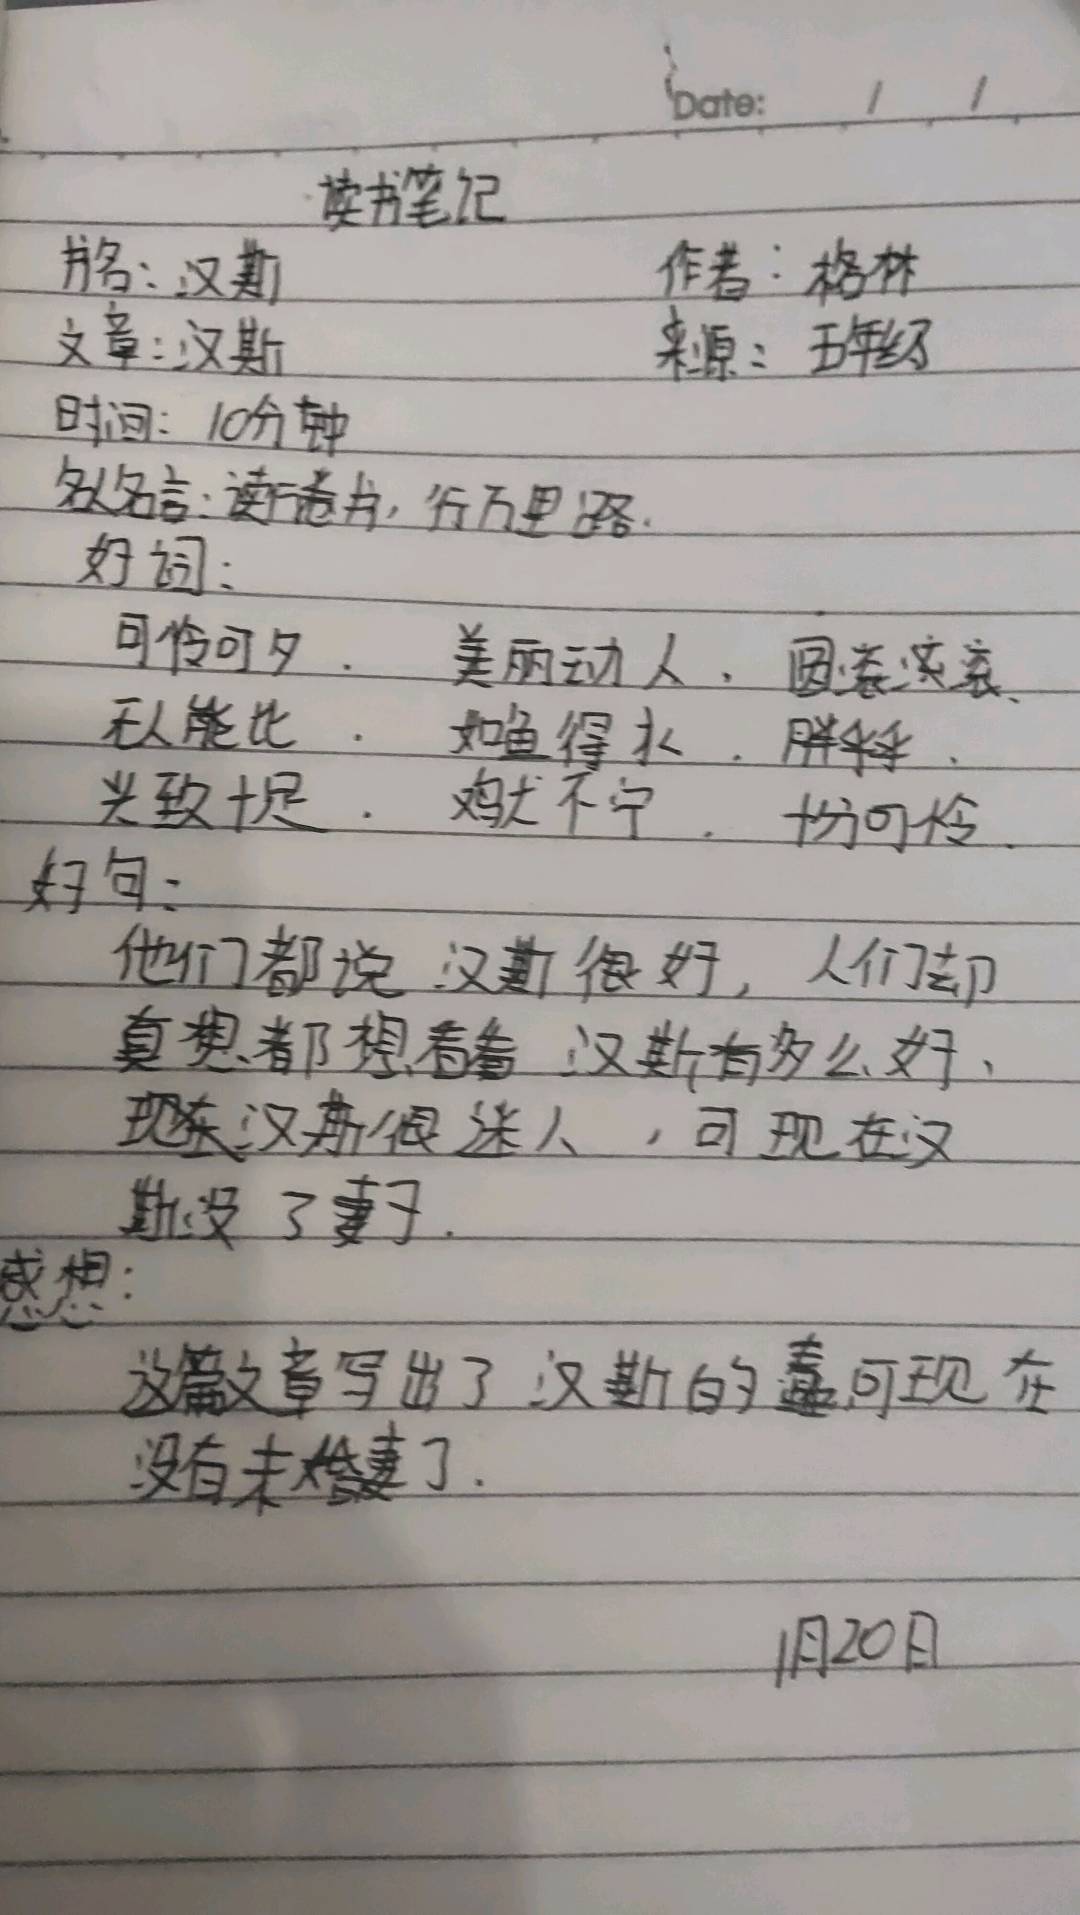 Date: / /
读书笔记
书名：汉斯 作者：格林
文章：汉斯 来源：五年级
时间：10分钟
名人名言：读万卷书，行万里路.
好词：
可怜可夕. 美丽动人. 圆滚滚滚、
无人能比. 如鱼得水. 胖乎乎.
兴致十足. 鸡犬不宁. 十分可怜.
好句：
他们都说汉斯很好，人们却
真想都想看着汉斯有多么好、
现在汉斯很迷人，可现在汉
斯没了妻子.
感想：
这篇文章写出了汉斯的蠢可现在
没有未婚妻了.
1月20日